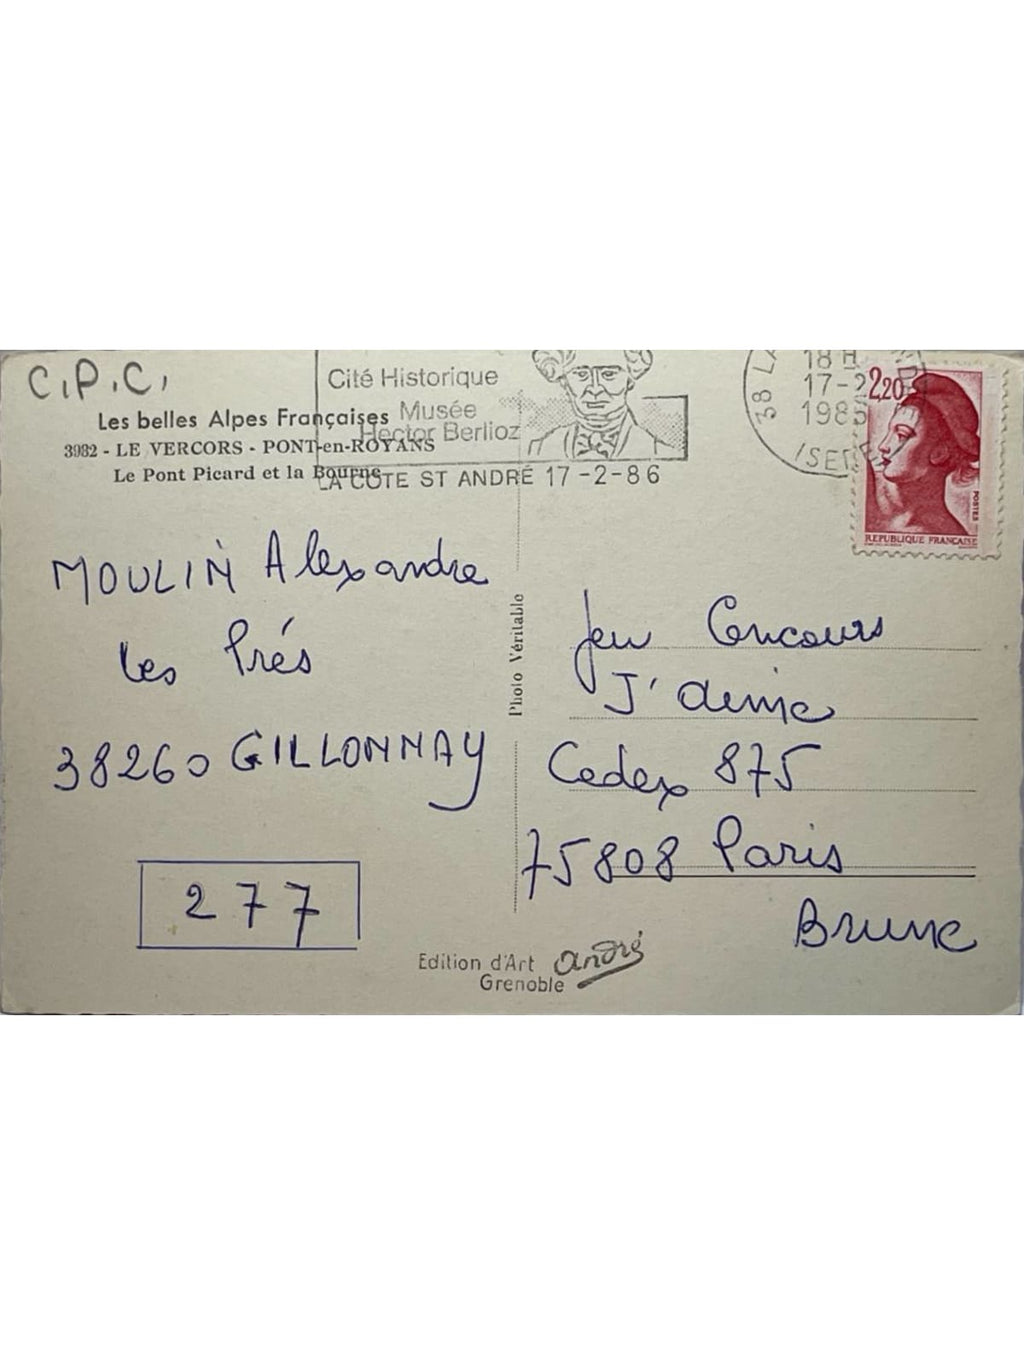 C.P.C.
Cité Historique
Musée
Hector Berlioz
LA COTE ST ANDRÉ 17-2-86
38 LA
18 H
17-2
1985
ISERE
2,20
POSTES
REPUBLIQUE FRANCAISE
Les belles Alpes Françaises
3982 - LE VERCORS - PONT-en-ROYANS
Le Pont Picard et la Bourne
MOULIN Alexandre
les Prés
38260 GILLONNAY
277
Photo Véritable
Jeu Concours
J'aime
Cedex 875
75808 Paris
Brune
Edition d'Art andré
Grenoble